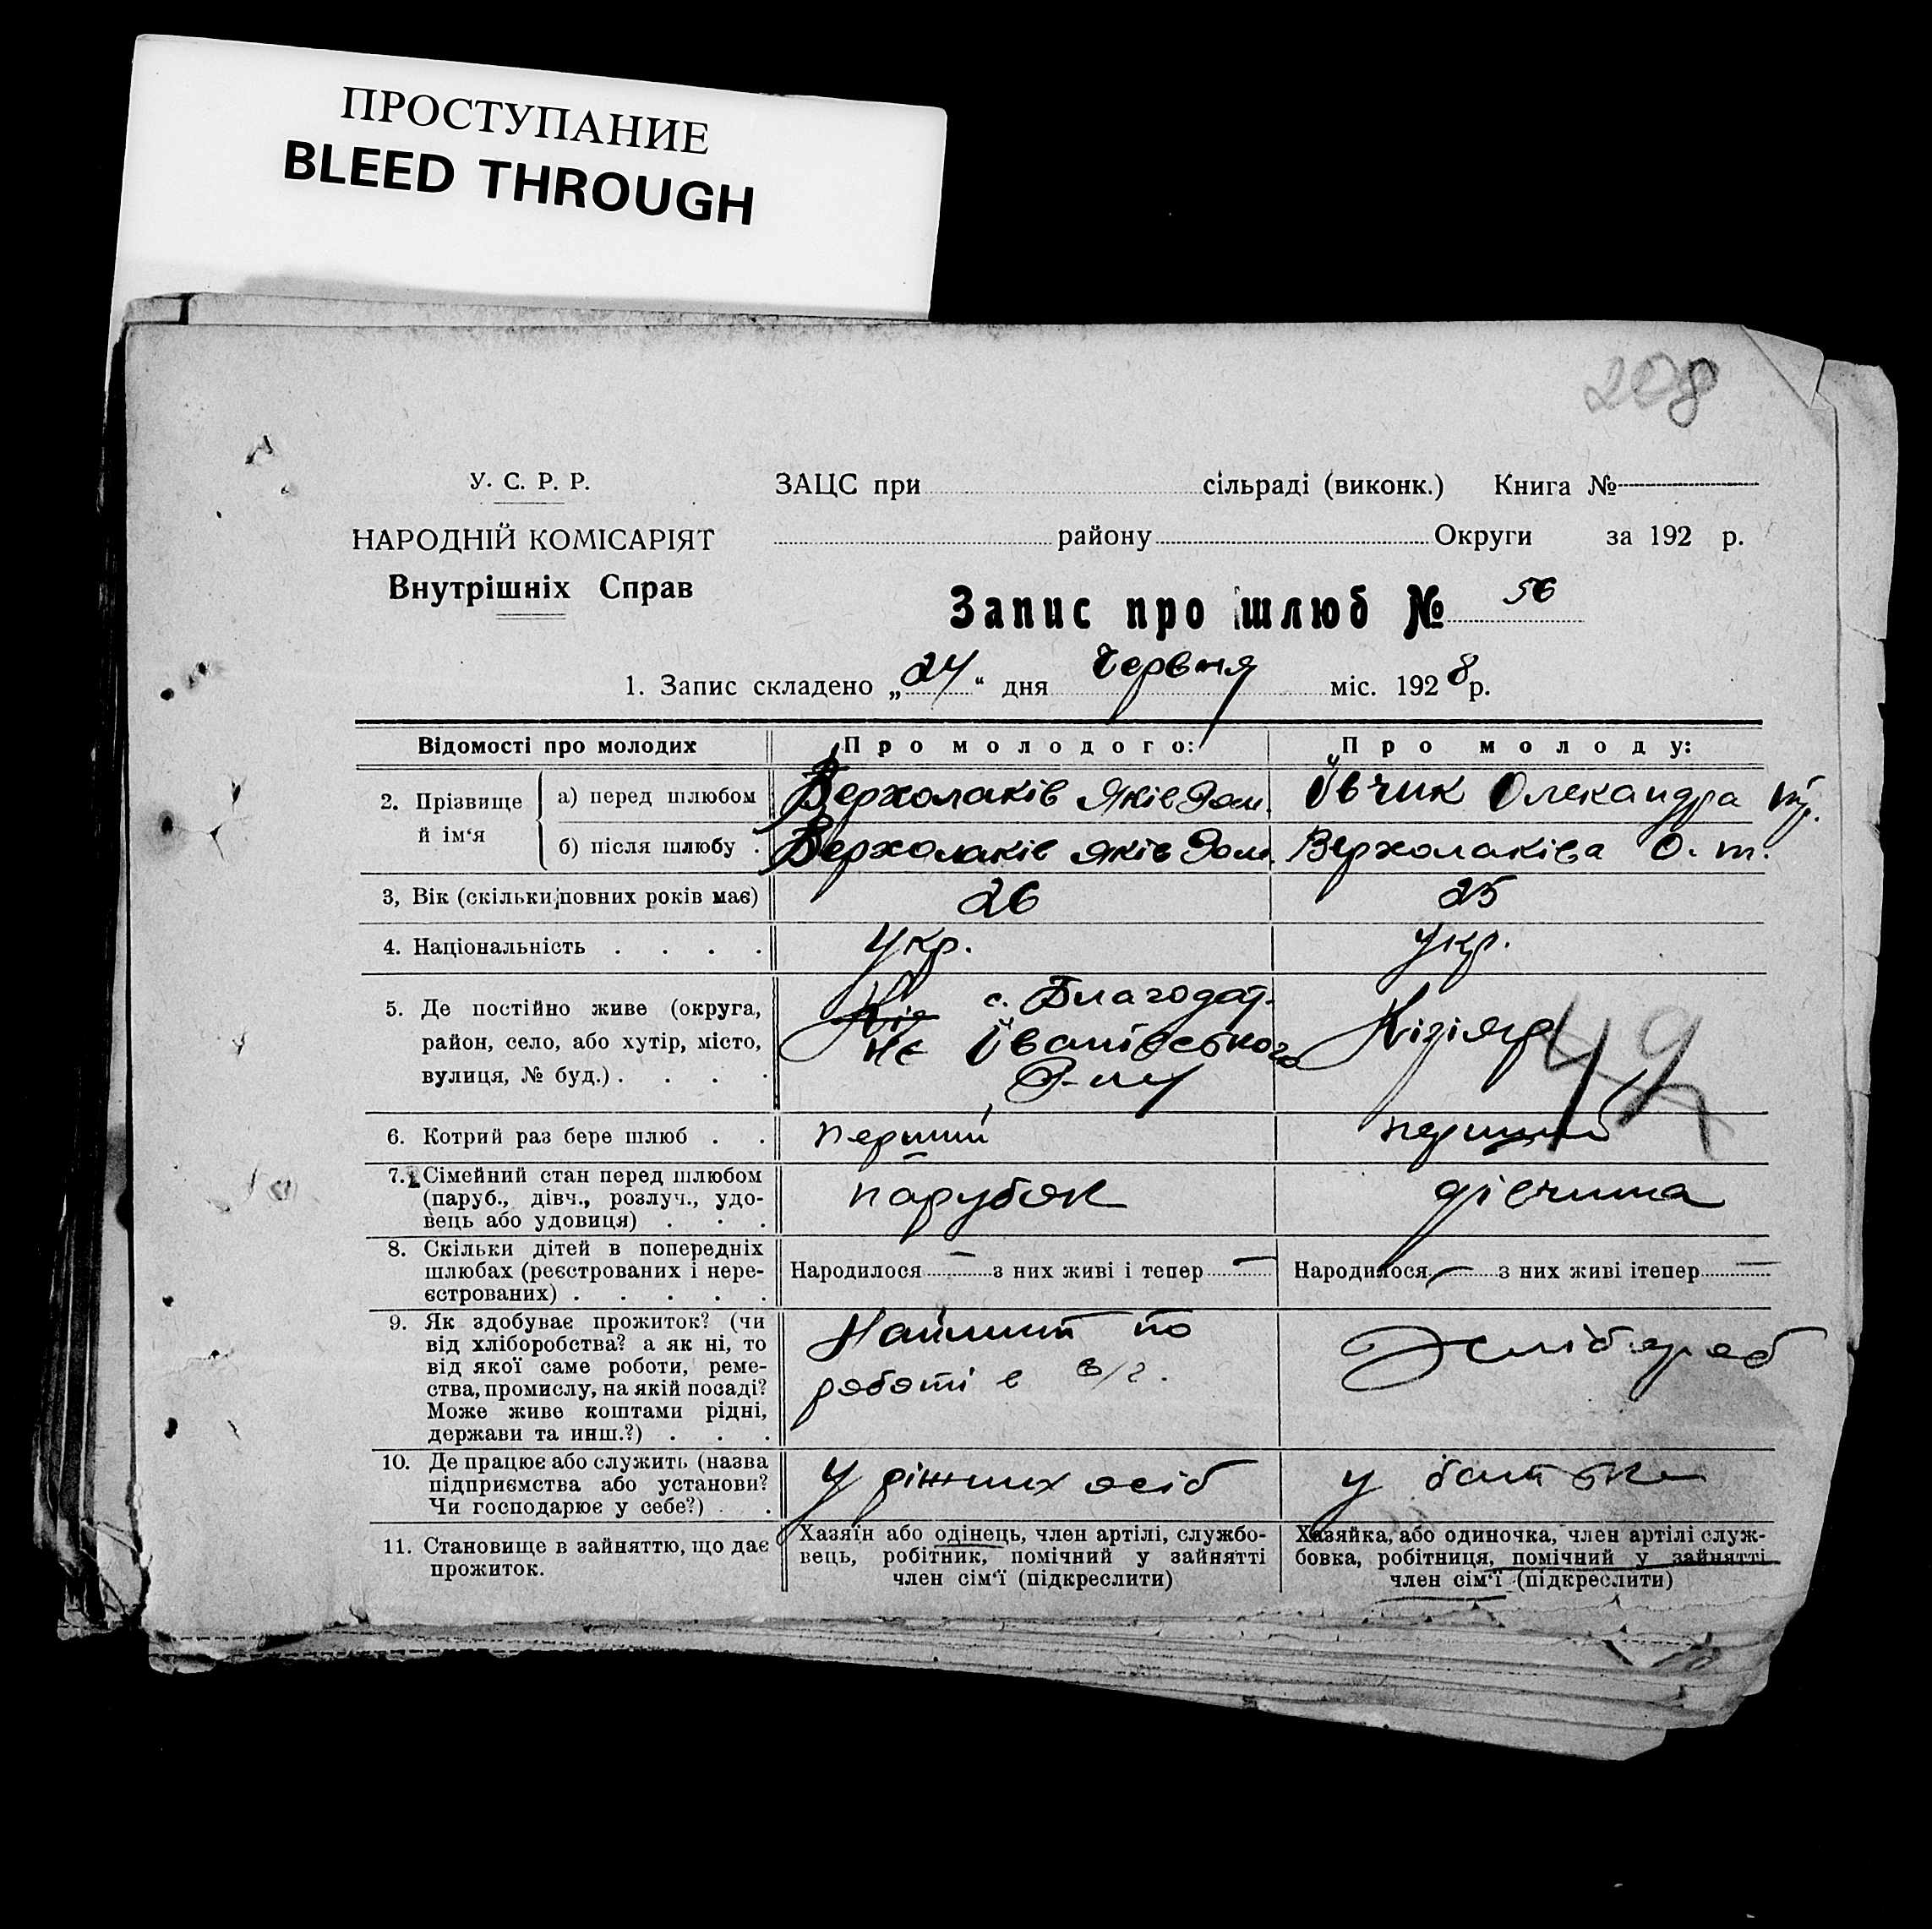 ПРОСТУПАНИЕ
BLEED THROUGH
208
У. С. Р. Р.
НАРОДНІЙ КОМІСАРІЯТ
Внутрішніх Справ
ЗАЦС при сільраді (виконк.) Книга №
району Округи за 192 р.
Запис про шлюб № 56
1. Запис складено „24“ дня Червня міс. 1928 р.
Відомості про молодих Про молодого: Про молоду:
2. Прізвище й ім‘я
а) перед шлюбом Верхолаків Яків Івчик Олександра
б) після шлюбу . Верхолаків Яків Верхолаківа О. т.
3, Вік (скільки повних років має) 26 25
4. Національність . . . . Укр. Укр.
5. Де постійно живе (округа, с. Благодат-
район, село, або хутір, місто, не Іванівського Кізіяр
вулиця, № буд.) . . . . Р-ну
49
6. Котрий раз бере шлюб . . перший перший
7. Сімейний стан перед шлюбом
(паруб., дівч., розлуч., удо- парубок дівчина
вець або удовиця) . . .
8. Скільки дітей в попередніх
шлюбах (реєстрованих і нере- Народилося — з них живі і тепер — Народилося — з них живі ітепер —
єстрованих) . . . . .
9. Як здобуває прожиток? (чи
від хліборобства? а як ні, то Наймит по Хлібороб
від якої саме роботи, реме- роботі в
ства, промислу, на якій посаді?
Може живе коштами рідні,
держави та инш.?) . . .
10. Де працює або служить (назва
підприємства або установи? У ріжних осіб у батька
Чи господарює у себе?) . .
11. Становище в зайняттю, що дає
прожиток.
Хазяїн або одінець, член артілі, службо-
вець, робітник, помічний у зайнятті
член сім‘ї (підкреслити)
Хазяйка, або одиночка, член артілі служ-
бовка, робітниця, помічний у зайнятті
член сім‘ї (підкреслити)